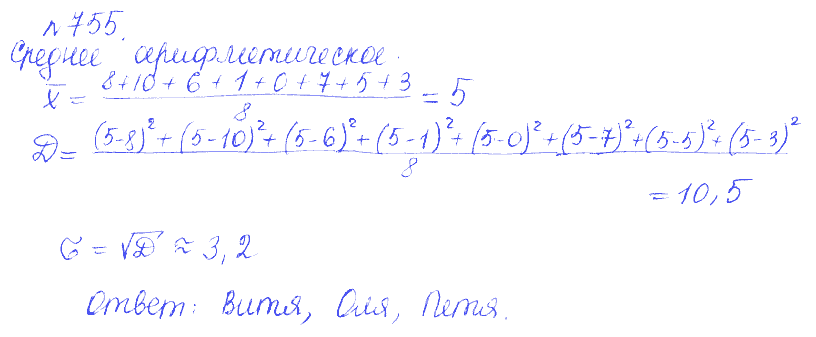 № 755.
Среднее арифметическое.
x̄ = (8+10+6+1+0+7+5+3)/8 = 5
D = ((5-8)²+(5-10)²+(5-6)²+(5-1)²+(5-0)²+(5-7)²+(5-5)²+(5-3)²)/8
= 10,5
σ = √D ≈ 3,2
Ответ: Витя, Оля, Петя.